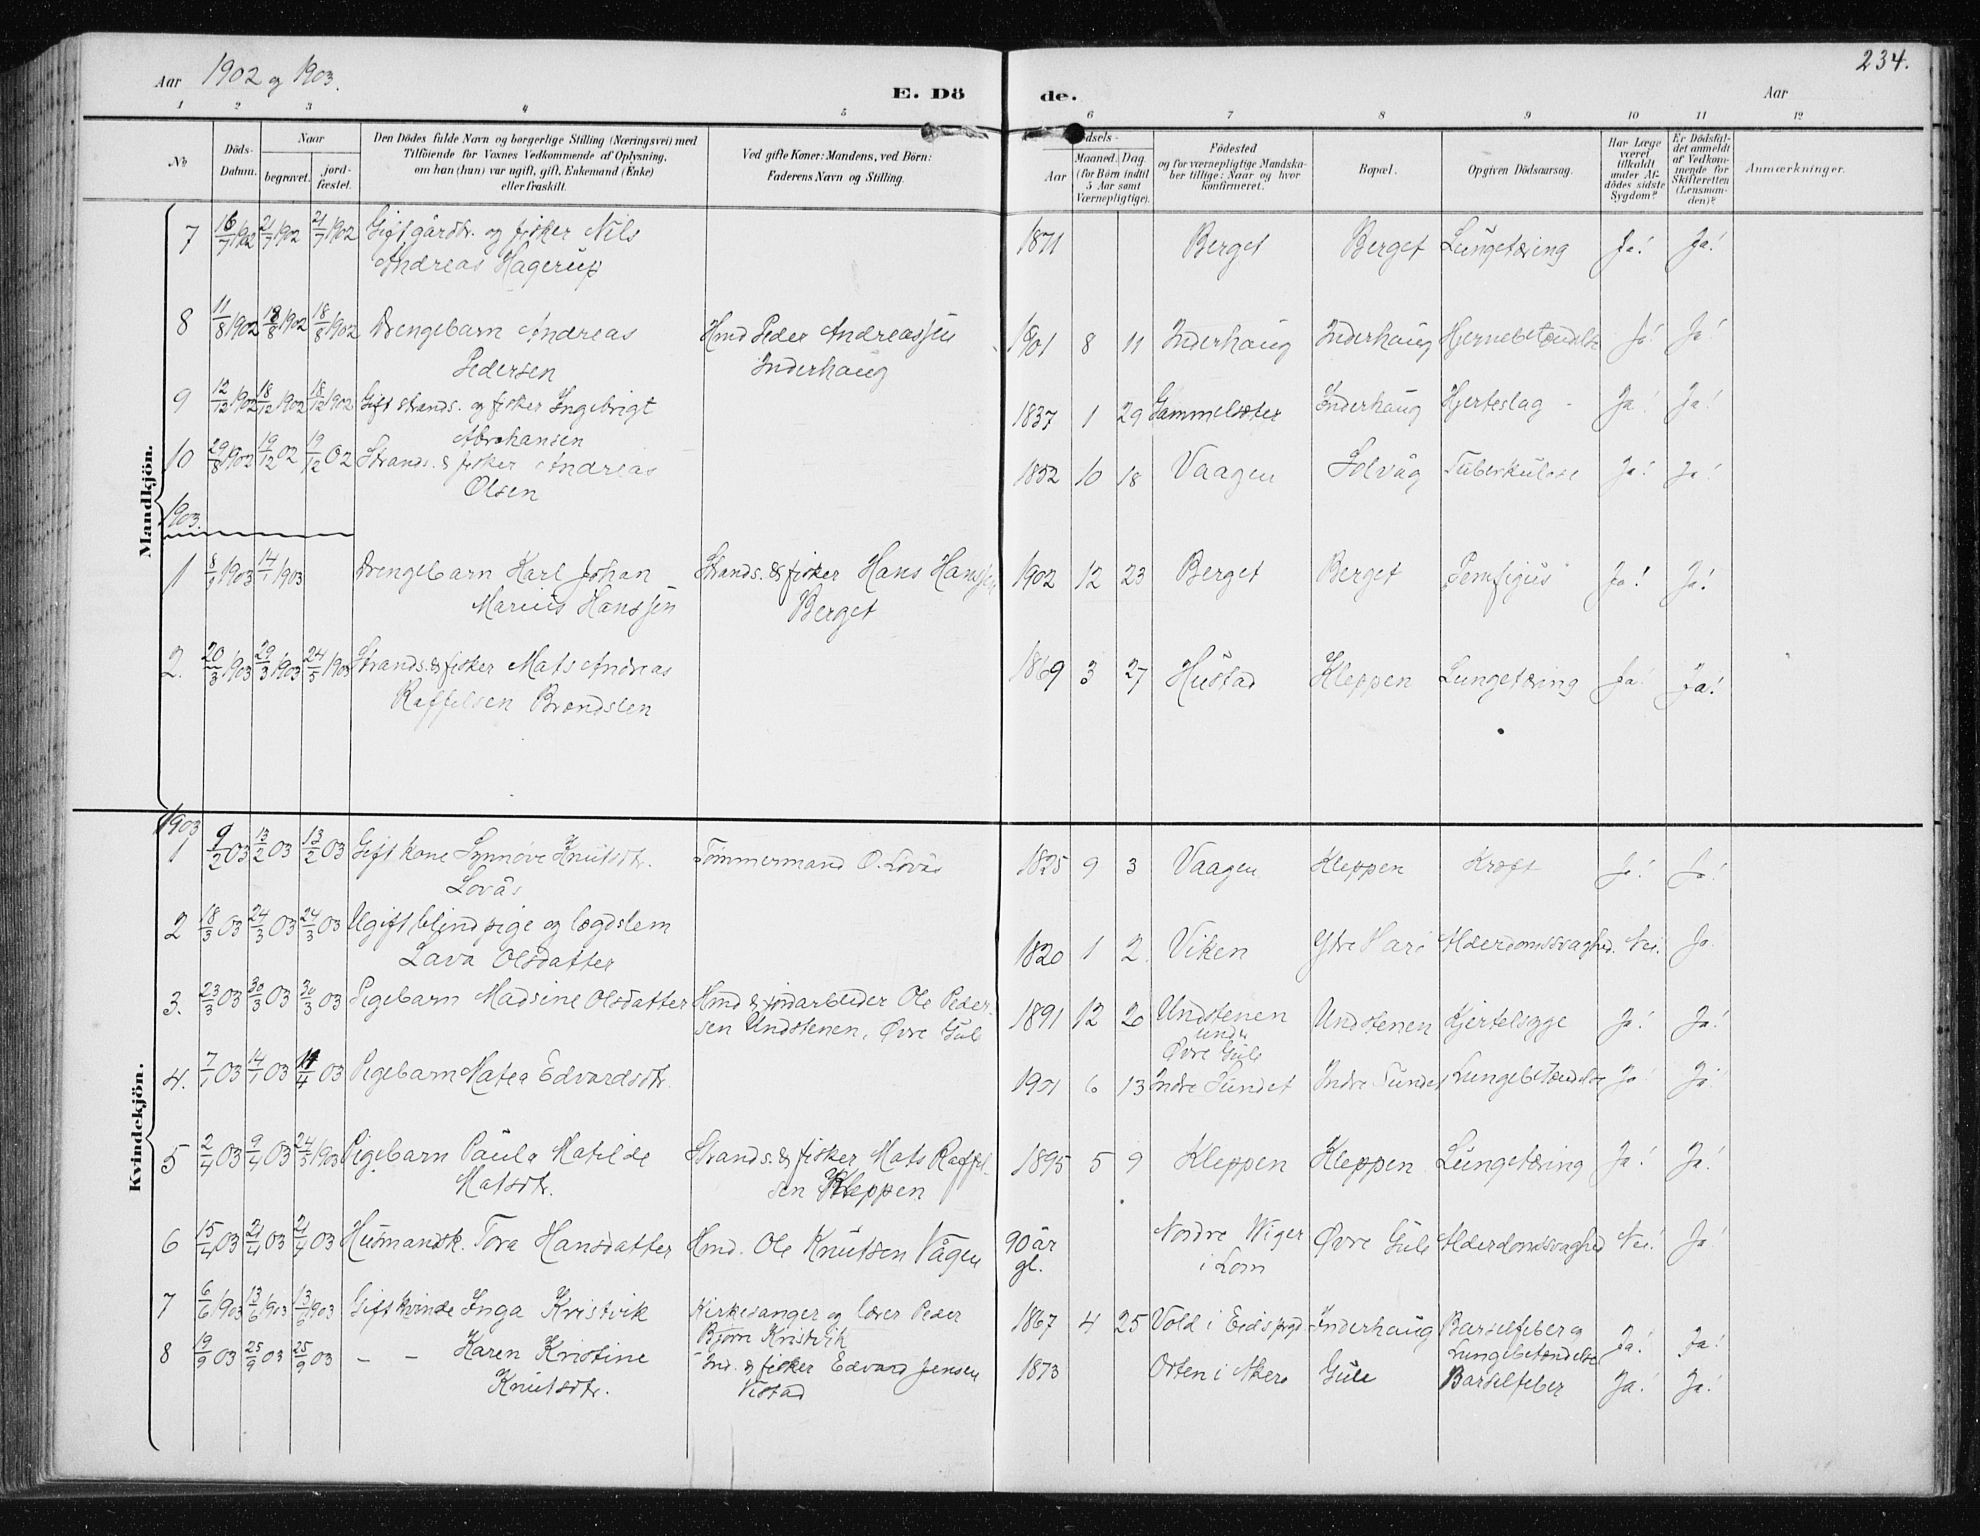 Aar 1902 og 1903.
E. Dö de.
Aar
234.
1 2 3 4 5 6 7 8 9 10 11 12
No
Döds-Datum.
Naar
begravet.
jord-fæstet.
Den Dödes fulde Navn og borgerlige Stilling (Næringsvei) med
Tilföiende for Voxnes Vedkommende af Oplysning,
om han (hun) var ugift, gift, Enkemand (Enke)
eller fraskilt.
Ved gifte Koner: Mandens, ved Börn:
Faderens Navn og Stilling.
Aar
Maaned. Dag.
(for Börn indtil
5 Aar samt
Værnepligtige).
Födested
og for værnepligtige Mandska-
ber tillige: Naar og hvor
konfirmeret.
Bopæl.
Opgiven Dödsaarsag.
Har Læge
været
tilkaldt
under Af-
dödes sidste
Sygdom?
Er Dödsfal-
det anmeldt
af Vedkom-
mende for
Skifteretten
(Lensman-
den)?
Anmærkninger.
Mandkjön.
7 16/7 1902 21/7 1902 21/7 1902 Gift gårdbr. og fisker Nils 1871 Berget Berget Lungetæring Ja! Ja!
Andreas Hagerup
8 11/8 1902 18/8 1902 18/8 1902 Drengebarn Andreas Hmd Peder Andreassen 1901 8 11 Inderhaug Inderhaug Hjernebetændelse Ja! Ja!
Pedersen Inderhaug
9 12/12 1902 18/12 1902 18/12 1902 Gift strands. og fisker Ingebrigt 1837 1 29 Gammelsæter Inderhaug Hjerteslag Ja! Ja!
Abrahansen
10 29/8 1902 19/12 02 19/12 02 Strands. & fisker Andreas 1852 10 18 Vaagen Solvåg Tuberkulose Ja! Ja!
Olsen
1903.
1 8/1 1903 14/1 1903 Drengebarn Karl Johan Strands. & fisker Hans Hanssen 1902 12 23 Berget Berget "Pemfigus" Ja! Ja!
Marius Hanssen Berget
2. 20/3 1903 29/3 1903 24/5 1903 Strands. & fisker Mats Andreas 1869 3 27 Hustad Kleppen Lungetæring Ja! Ja!
Raffelsen Brandslen
Kvindekjön.
1903
1 9/2 03 13/2 03 13/2 03 Gift kone Synnøve Knutsdtr. Tømmermand O. Lovås 1825 9 3 Vaagen Kleppen Kræft Ja! Ja!
Lovås
2 18/3 03 24/3 03 24/3 03 Ugift blind pige og lægdslem 1820 1 2 Viken Ytre Hari Alderdomssvaghed. Nei. Ja
Lava Olsdatter
3. 23/3 03 30/3 03 30/3 03 Pigebarn Madsine Olsdatter Hmd & jordarbeider Ole Peder- 1891 12 20 Undstenen Undstenen Kjertelsyge Ja! Ja!
sen Undstenen, Øvre Gule under
Øvre Gule
4. 7/1 03 14/1 03 14/4 03 Pigebarn Matea Edvardsdtr. 1901 6 13 Indre Sundet Indre Sundet Lungebetændelse Ja! Ja
5 2/4 03 9/4 03 24/5 1903 Pigebarn Paula Matilde Strands. & fisker Mats Raffel- 1895 5 9 Kleppen Kleppen Lungetæring Ja! Ja!
Matsdtr. sen Kleppen
6 15/4 03 21/4 03 21/4 03 Husmandsk. Tora Hansdatter Hmd. Ole Knutsen Vågen 90 år Nordre Wiger Øvre Gule Alderdomssvaghed Nei! Ja!
gl. i Lom
7 6/6 1903 13/6 1903 13/6 1903 Gift kvinde Inga Kristvik Kirkesanger og lærer Peder 1867 4 25 Vold i Eidsbygd Inderhaug Barselfeber og Ja! Ja!
Bjørn Kristvik Lungebetændelse
8 19/9 03 25/9 03 25/9 03 – – Karen Kristine Ind. & fisker Edvard Jensen 1873 Orten i Akerø Gule Barselfeber Ja! Ja!
Knutsdtr. Vestad